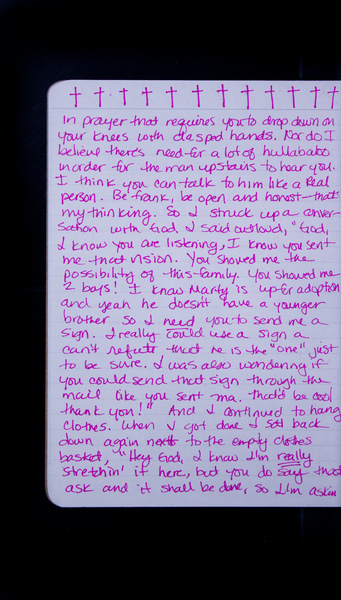 In prayer that requires you to drop down on
your knees with clasped hands. Nor do I
believe there's need for a lot of hullabaloo
in order for the man upstairs to hear you.
I think you can talk to him like a Real
person. Be frank, be open and honest-that's
my thinking. So I struck up a conver-
sation with God. I said outloud, "God,
I know you are listening, I know you sent
me that vision. You showed me the
possibility of this family. You showed me
2 boys! I know Marty is up for adoption
and yeah he doesn't have a younger
brother so I need you to send me a
sign. I really could use a sign a
can't refute that he is the "one" just
to be sure. I was also wondering if
you could send that sign through the
mail like you sent ma. that'd be cool
thank you!" And I continued to hang
clothes. When I got done I sat back
down again next to the empty clothes
basket, "Hey God, I know I'm really
stretchin' it here, but you do say that
ask and it shall be done, so I'm askin